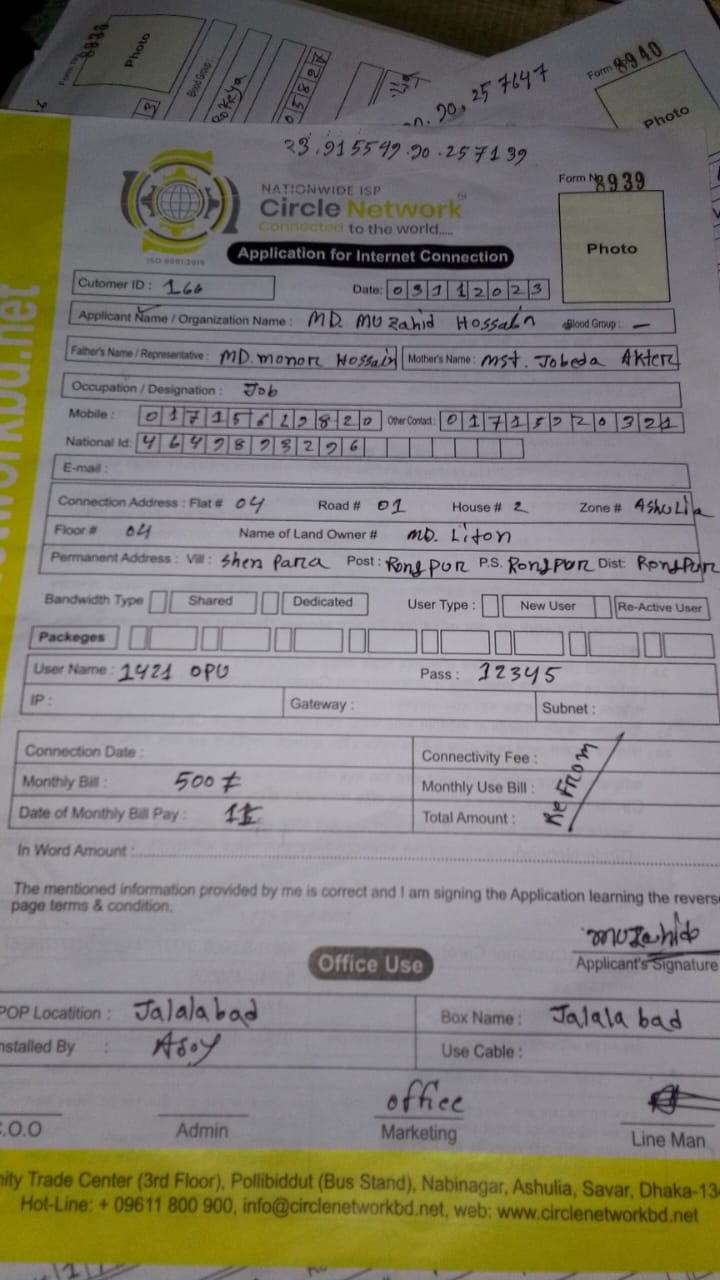 Form No 8939
Photo
Blood Group :
Rokeya
05828
90.257647
Form 8940
Photo
23.915549.90.257139
Form No 8939
NATIONWIDE ISP
Circle Network
Connected to the world.....
ISO 9001:2015
Photo
Application for Internet Connection
Cutomer ID : 166
Date: 03112023
Applicant Name / Organization Name : MD. MUzahid Hossain Blood Group : —
Father's Name / Representative : MD. monor Hossain Mother's Name : mst. Jobeda Akter
Occupation / Designation : Job
Mobile : 01715629820 Other Contact : 01715220321
National Id: 4649893296
E-mail :
Connection Address : Flat # 04 Road # 01 House # 2 Zone # Ashulia
Floor # 04 Name of Land Owner # MD. Liton
Permanent Address : Vill : Sher Para Post : Rongpur P.S. Rongpur Dist: Rongpur
Bandwidth Type Shared Dedicated User Type : New User Re-Active User
Packeges
User Name : 1421 OPU Pass : 12345
IP : Gateway : Subnet :
Connection Date : Connectivity Fee :
Monthly Bill : 500 Monthly Use Bill :
Date of Monthly Bill Pay : Total Amount : Re From
In Word Amount :
The mentioned information provided by me is correct and I am signing the Application learning the revers
page terms & condition.
muzahid
Applicant's Signature
Office Use
POP Locatition : Jalalabad Box Name : Jalala bad
nstalled By : Asoy Use Cable :
office
C.O.O Admin Marketing Line Man
nity Trade Center (3rd Floor), Pollibiddut (Bus Stand), Nabinagar, Ashulia, Savar, Dhaka-13
Hot-Line: + 09611 800 900, info@circlenetworkbd.net, web: www.circlenetworkbd.net
tworkbd.net